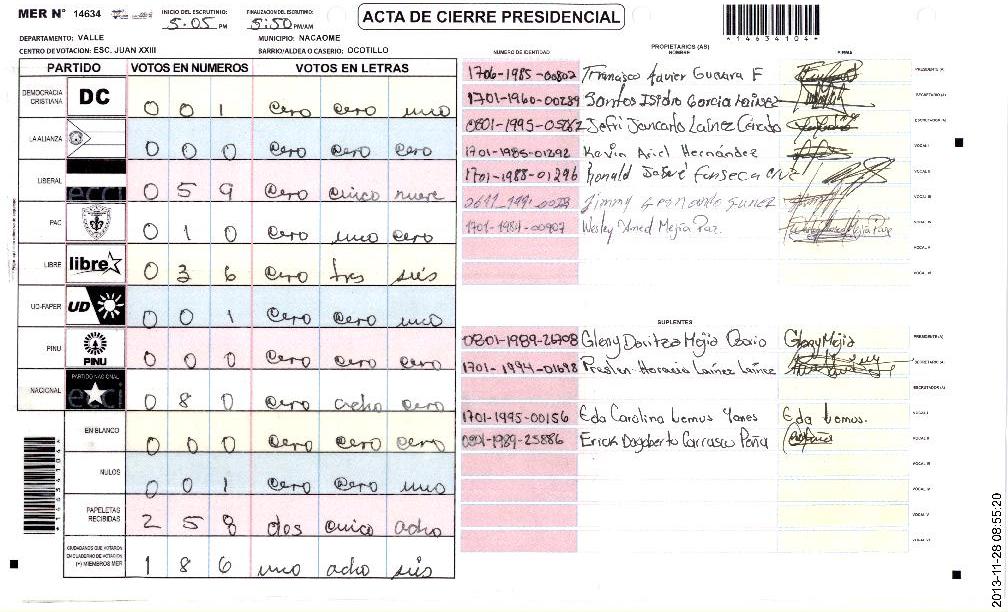 MER N° 14634
INICIO DEL ESCRUTINIO: 5:05 PM
FINALIZACION DEL ESCRUTINIO: 5:50 PM/AM
ACTA DE CIERRE PRESIDENCIAL
*14634104*
DEPARTAMENTO: VALLE MUNICIPIO: NACAOME
CENTRO DE VOTACION: ESC. JUAN XXIII BARRIO/ALDEA O CASERIO: OCOTILLO
PARTIDO VOTOS EN NUMEROS VOTOS EN LETRAS
DEMOCRACIA CRISTIANA DC 0 0 1 cero cero uno
LA ALIANZA 0 0 0 cero cero cero
LIBERAL 0 5 9 cero cinco nueve
PAC 0 1 0 cero uno cero
LIBRE libre 0 3 6 cero tres seis
UD-FAPER UD 0 0 1 cero cero uno
PINU PINU 0 0 0 cero cero cero
NACIONAL PARTIDO NACIONAL 0 8 0 cero ocho cero
EN BLANCO 0 0 0 cero cero cero
NULOS 0 0 1 cero cero uno
PAPELETAS RECIBIDAS 2 5 8 dos cinco ocho
CIUDADANOS QUE VOTARON EN CUADERNO DE VOTACION (+) MIEMBROS MER 1 8 6 uno ocho seis
PROPIETARIOS (AS)
NUMERO DE IDENTIDAD NOMBRE FIRMA
1706-1985-00802 Francisco Javier Guevara F PRESIDENTE (A)
1701-1960-00289 Santos Isidro Garcia Lainez SECRETARIO (A)
0801-1995-05867 Jefri Joncarlo Lainez Cerato ESCRUTADOR (A)
1701-1985-01292 Kevin Ariel Hernández VOCAL I
1701-1988-01296 Ronald Fonseca VOCAL II
Jimmy Leonardo VOCAL III
1701-1989-00907 Wesley Mejia Paz. VOCAL IV
VOCAL V
VOCAL VI
SUPLENTES
0801-1989-26798 Gleny Daritza Mejia Osorio Gleny Mejia PRESIDENTE (A)
1701-1994-01698 Preslen Horacio Lainez Lainez SECRETARIO (A)
ESCRUTADOR (A)
1701-1995-00156 Eda Carolina Lemus Yanes Eda Lemus. VOCAL I
0801-1989-25886 Erick Dagoberto Carrasco Peña VOCAL II
VOCAL III
VOCAL IV
VOCAL V
VOCAL VI
2013-11-28 08:55:20